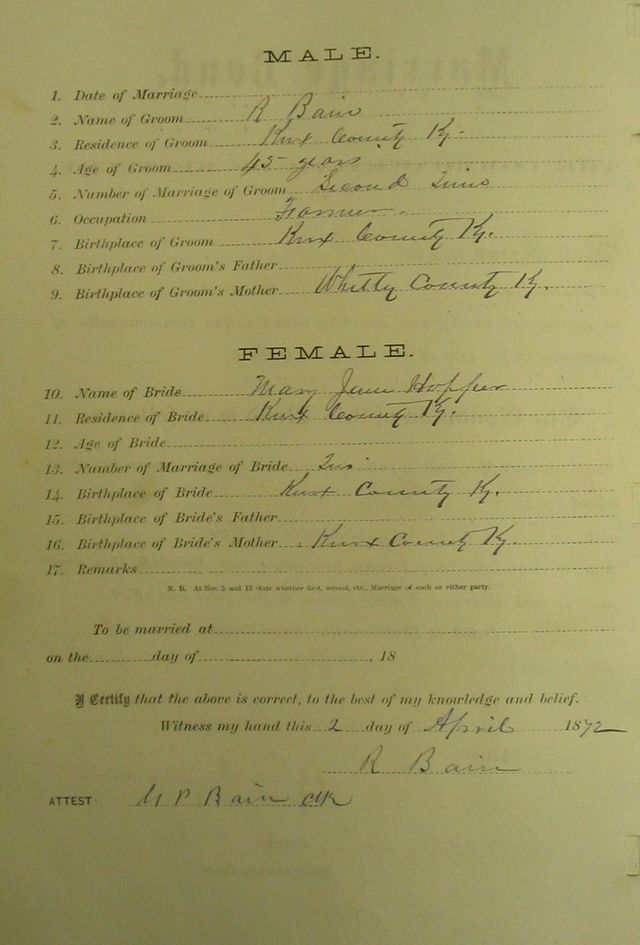 MALE.
1. Date of Marriage
2. Name of Groom R Bain
3. Residence of Groom Knx County Ky.
4. Age of Groom 45 years
5. Number of Marriage of Groom Second Time
6. Occupation Farmer.
7. Birthplace of Groom Knx County Ky.
8. Birthplace of Groom's Father
9. Birthplace of Groom's Mother Whitly County Ky.
FEMALE.
10. Name of Bride Mary Jane Hopper
11. Residence of Bride Knx County Ky.
12. Age of Bride
13. Number of Marriage of Bride
14. Birthplace of Bride Knx County Ky.
15. Birthplace of Bride's Father
16. Birthplace of Bride's Mother Knx County Ky.
17. Remarks
N. B. At Nos. 5 and 13 state whether first, second, etc., Marriage of each or either party.
To be married at
on the day of , 18
I Certify that the above is correct, to the best of my knowledge and belief.
Witness my hand this 2 day of April 1872
R Bain
ATTEST: W P Bain clk